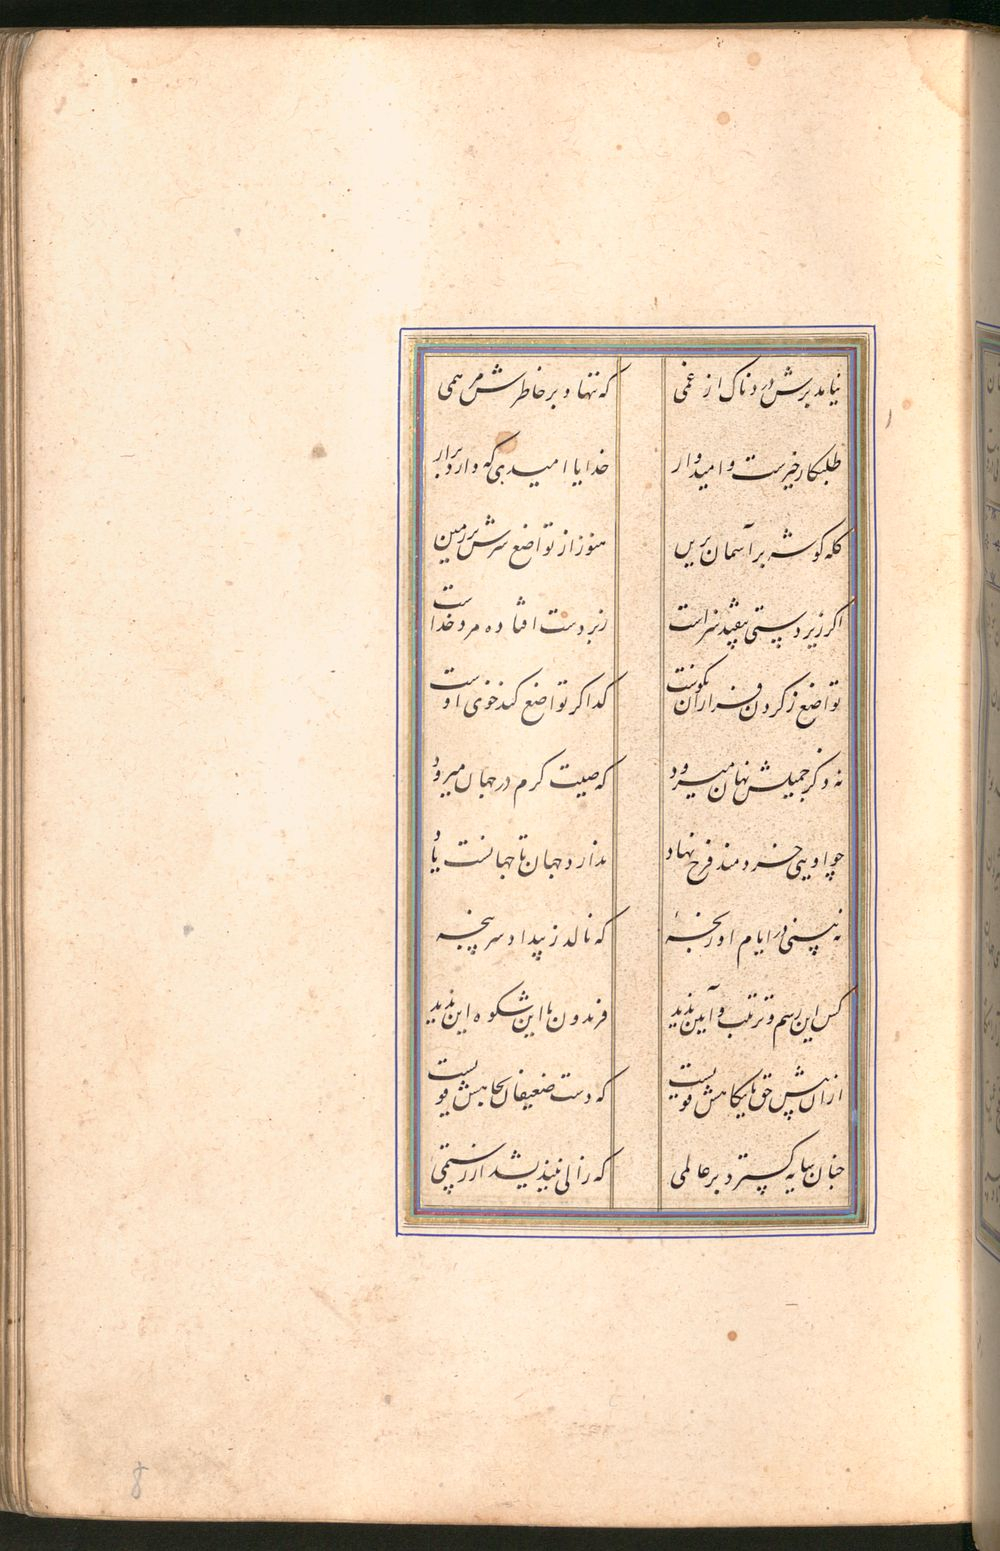 نیامد برش دردناک از غمی
که ننهاد بر خاطرش مرهمی
طلبکار خیرست و امیدوار
خدایا امیدی که دارد برار
کله گوشه بر آسمان برین
هنوز از تواضع سرش بر زمین
اگر زیر دستی بیفتد سزاست
زبردست افتاده مرد خداست
تواضع ز گردن فرازان نکوست
گدا گر تواضع کند خوی اوست
نه ذکر جمیلش نهان میرود
که صیت کرم در جهان میرود
چو اویی خردمند فرخ نهاد
ندارد جهان تا جهانست یاد
نه بینی در ایام او رنجهٔ
که نالد ز بیداد سرپنجه
کس این رسم و ترتیب و آیین ندید
فریدون با این شکوه این ندید
ازان پیش حق پایکاهش قویست
که دست ضعیفان بجاهش قویست
چنان سایه گسترد بر عالمی
که زالی نیندیشد از رستمی
8